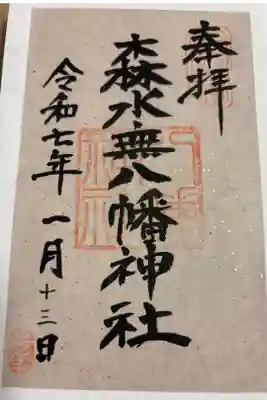 奉拝
森水無八幡神社
令和七年一月十三日